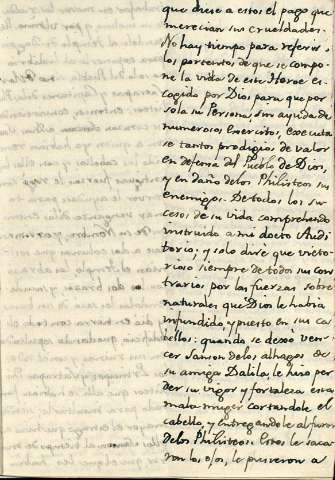 que diese a estos el pago que
merecian sus crueldades.
No hay tiempo para referir
los portentos de que se compo-
ne la vida de este Heroe es-
cogido por Dios para que por
sola su Persona, sin ayuda de
numerosos Exercitos, executa-
se tantos prodigios de valor
en defensa del Pueblo de Dios,
y en daño de los Philisteos sus
enemigos. De todos los su-
cesos de su vida comprehendo
instruido a mi docto Audi-
torio; y solo diré que victo-
rioso siempre de todos sus con-
trarios por las fuerzas sobre
naturales que Dios le habia
infundido y puesto en sus ca-
bellos: quando se dexo ven-
cer Sanson de los alhagos de
su amiga Dalila, le hizo per-
der su vigor y fortaleza esta
mala muger cortandole el
cabello, y entregandole al furor
de los Philisteos. Estos le saca-
ron los ojos, le pusieron a